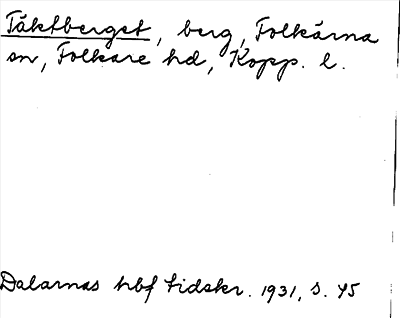 Täktberget, berg, Folkärna
sn, Folkare hd, Kopp. l.
Dalarnas hbf tidskr. 1931, s. 45